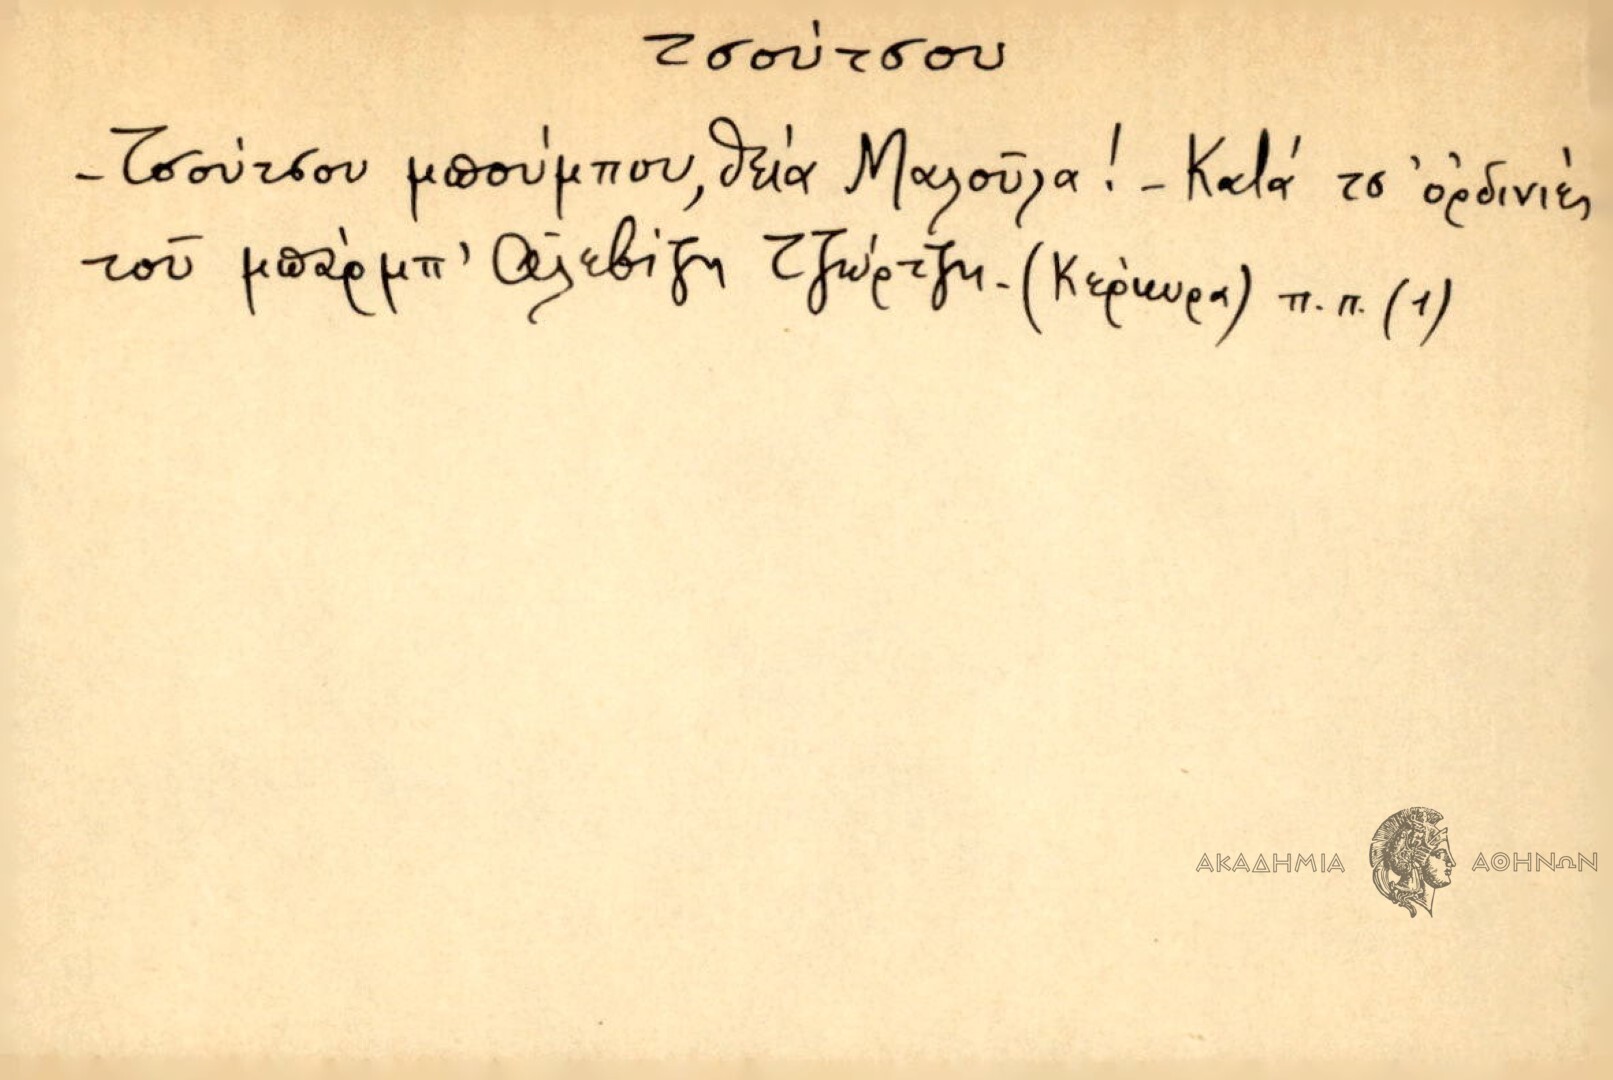 τσούτσου
- Τσούτσου μπούμπου, θειά Μαλοῦλα! - Κατά τσ' ὀρδινιές
τοῦ μπάρμπ' Ἀλεβίζη Τζώρτζη. - (Κέρκυρα) π. π. (1)
ΑΚΑΔΗΜΙΑ ΑΘΗΝΩΝ